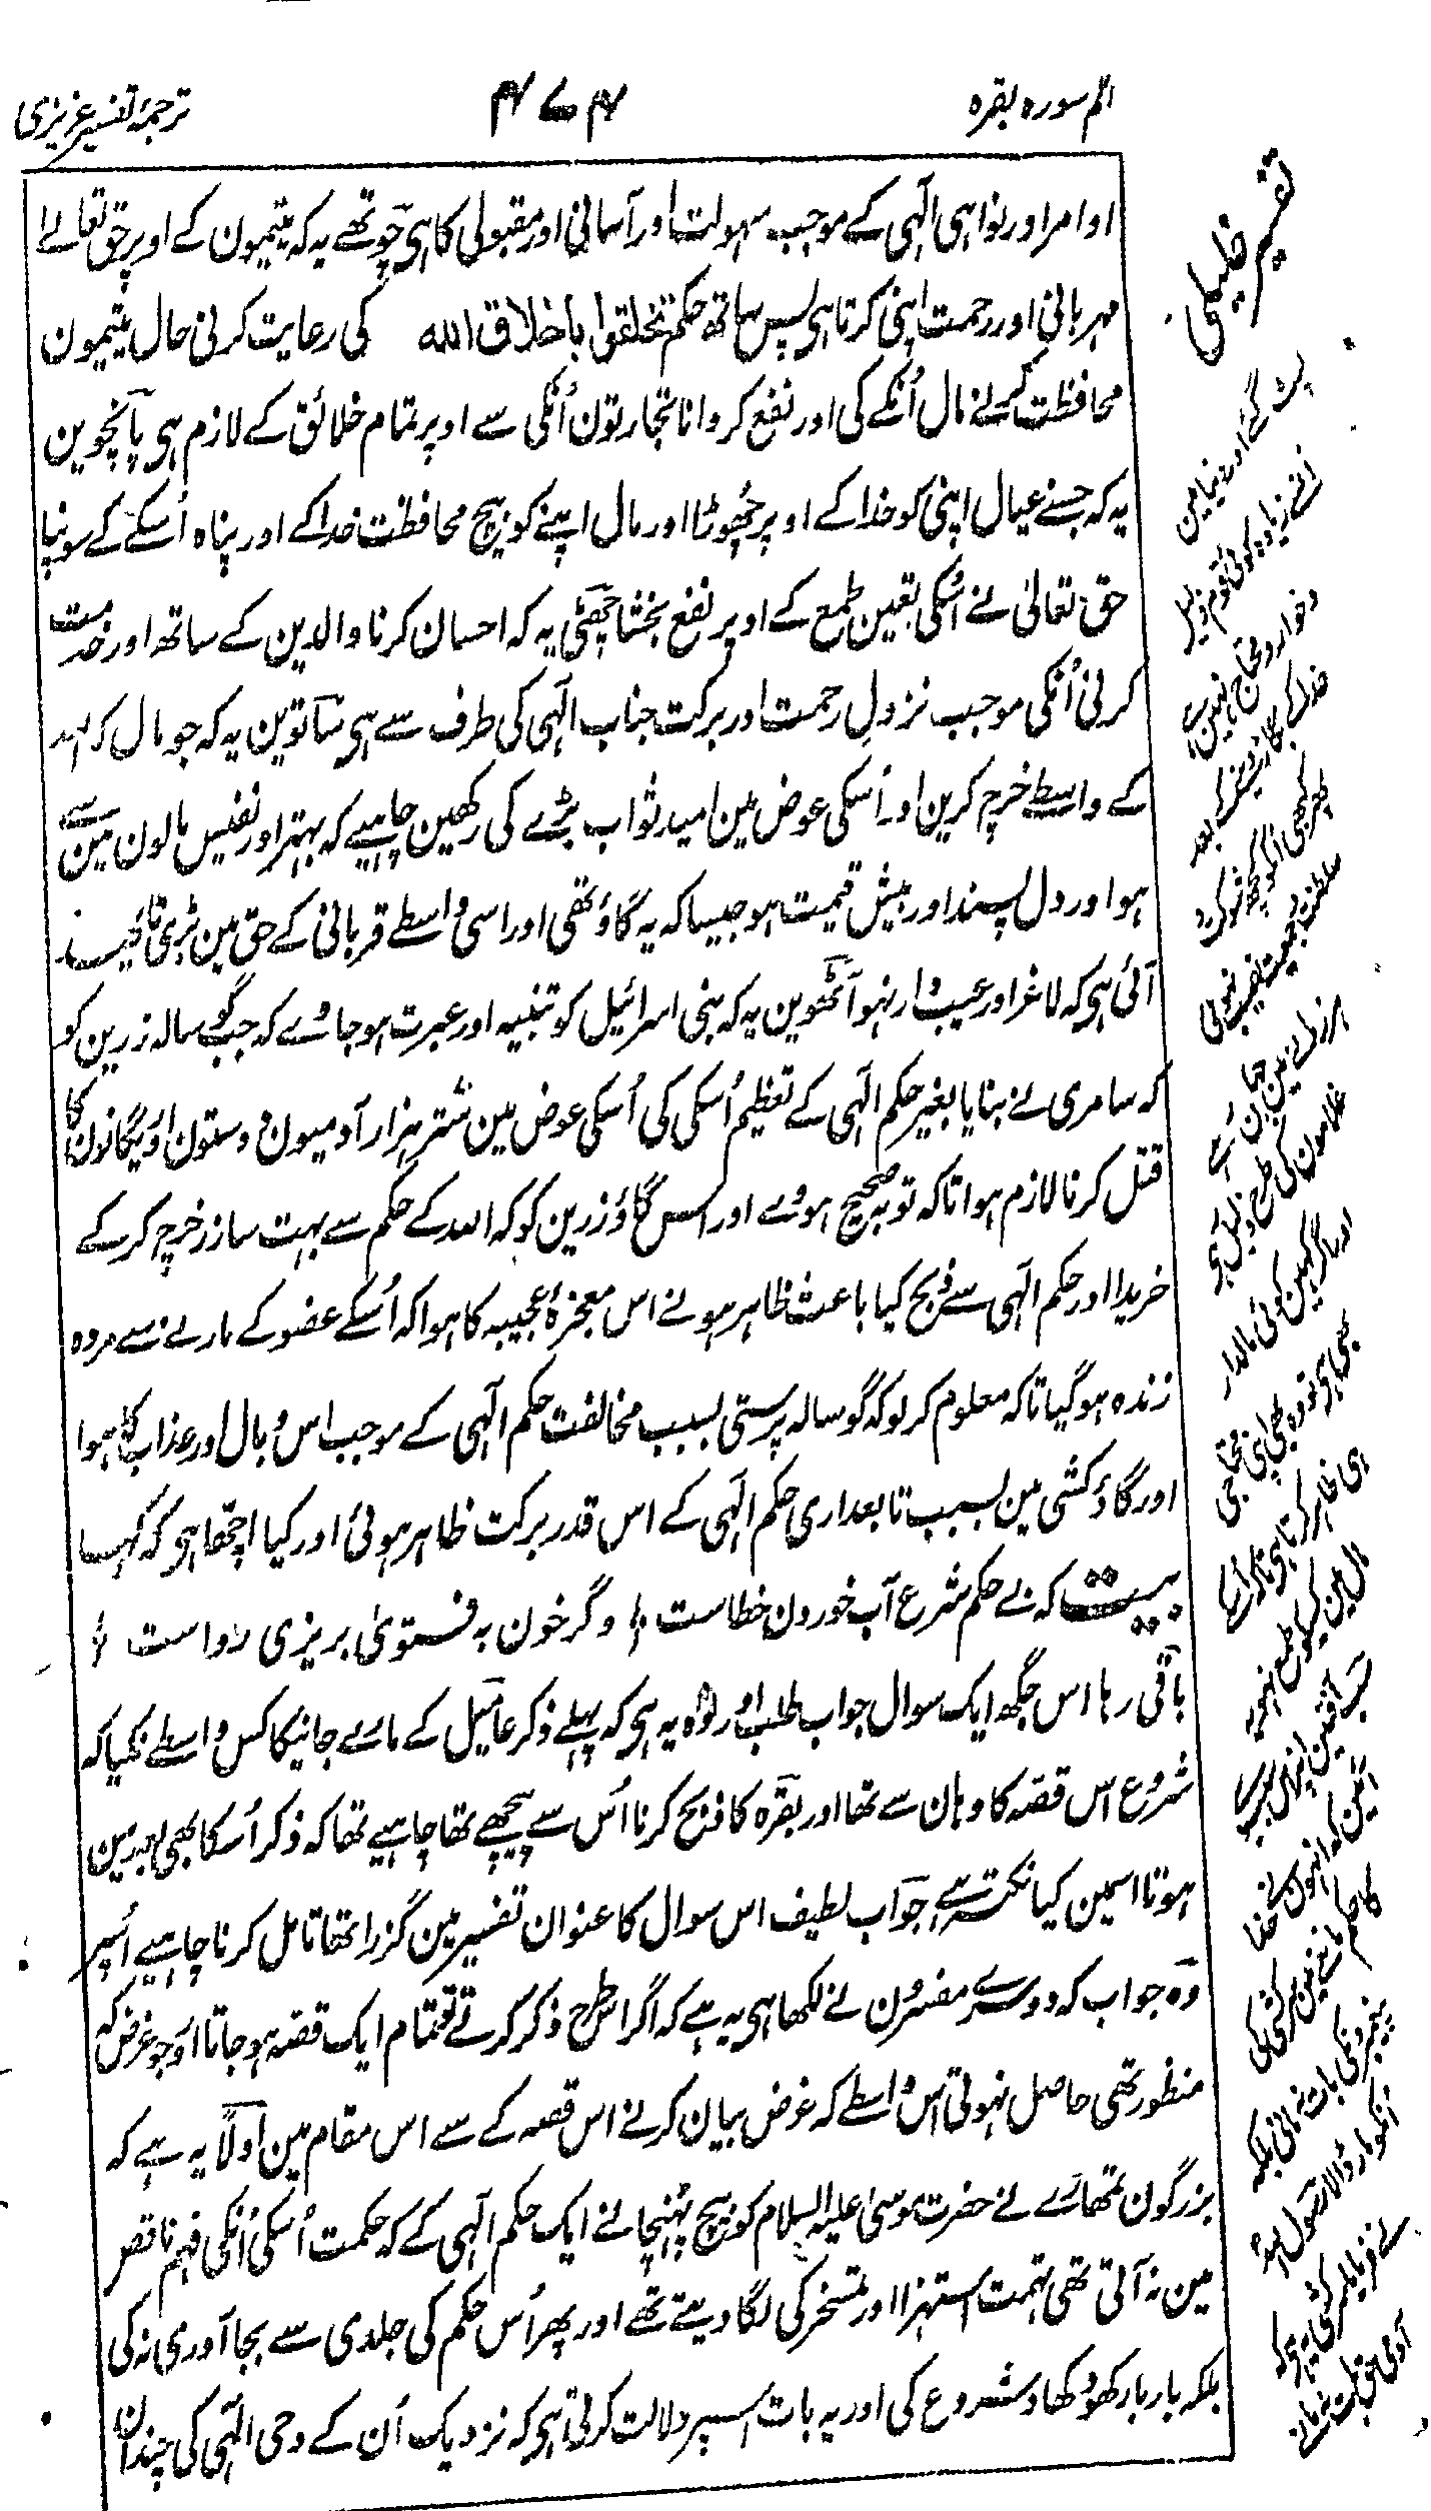 الم سورہ بقرہ
۴۷۴
ترجمۂ تفسیر عزیزی
اوامر اور نواہی الٰہی کے موجب سہولت اور آسانی اور مقبولی کا ہی چوتھے یہ کہ یتیمون کے اوپر حق تعالےٰ
مہربانی اور رحمت اپنی کرتا ہی پس ساتھ حکم تخلقوا باخلاق اللہ کی رعایت کرنی حال یتیمون
محافظت کرنے مال اُنکے کی اور نفع کروانا تجارتون اُنکی سے اوپر تمام خلائق کے لازم ہی پانچوین
یہ کہ جسنے عیال اپنی کو خدا کے اوپر چھوڑا اور مال اپنے کو بیچ محافظت خدا کے اور پناہ اُسکے کے سونپا
حق تعالیٰ نے اُسکی بقین طمع کے اوپر نفع بخشا چھٹی یہ کہ احسان کرنا والدین کے ساتھ اور خدمت
کرنی اُنکی موجب نزول رحمت اور برکت جناب الٰہی کی طرف سے ہی ساتوین یہ کہ جو مال کہ اللہ
کے واسطے خرچ کرین اور اُسکی عوض مین امید ثواب بڑے کی رکھین چاہیے کہ بہتر اور نفیس مالون مین سے
ہو اور دل پسند اور بیش قیمت ہو جیسا کہ یہ گاؤ تھی اور اسی واسطے قربانی کے حق مین بڑی تاکید
آئی ہی کہ لاغر اور عیب دار نہو آٹھوین یہ کہ بنی اسرائیل کو تنبیہ اور عبرت ہو جاوے کہ جب گوسالہ زرین کو
کہ سامری نے بنایا بغیر حکم الٰہی کے تعظیم اُسکی کی اُسکی عوض مین ستر ہزار آدمیون دوستون اور یگانون کا
قتل کرنا لازم ہوا تاکہ توبہ صحیح ہووے اور اس گاؤ زرین کو کہ اللہ کے حکم سے بہت سا زر خرچ کر کے
خریدا اور حکم الٰہی سے ذبح کیا باعث ظاہر ہونے اس معجزۂ عجیبہ کا ہوا کہ اُسکے عضو کے مارنے سے مردہ
زندہ ہو گیا تاکہ معلوم کر لو کہ گوسالہ پرستی بسبب مخالفت حکم الٰہی کے موجب اس وبال اور عذاب کا ہوا
اور گاؤکشی مین بسبب تابعداری حکم الٰہی کے اس قدر برکت ظاہر ہوئی اور کیا اچھا ہی کہ کہا
بیت کہ بے حکم شرع آب خوردن خطاست ؛ وگر خون بہ فتویٰ بریزی رواست ؛
باقی رہا اس جگھ ایک سوال جواب طلب اور وہ یہ ہی کہ پہلے ذکر عامیل کے مارے جانیکا کس واسطے نکیا کہ
شروع اس قصہ کا وہان سے تھا اور بقرہ کا ذبح کرنا اس سے پیچھے تھا چاہیے تھا کہ ذکر اُسکا بھی بعد مین
ہوتا اسمین کیا نکتہ ہے جواب لطیف اس سوال کا عنوان تفسیر مین گزرا تھا تامل کرنا چاہیے اُسپر
وہ جواب کہ دوسرے مفسرون نے لکھا ہی یہ ہے کہ اگر اسطرح ذکر کرتے تو تمام ایک قصہ ہو جاتا اور جو غرض کہ
منظور تھی حاصل نہوتی اس واسطے کہ غرض بیان کرنے اس قصہ کے سے اس مقام مین اولاً یہ ہے کہ
بزرگون تمھارے نے حضرت موسیٰ علیہ السلام کو بیچ پہنچانے ایک حکم الٰہی کے کہ حکمت اُسکی اُنکی فہم ناقص
مین نہ آتی تھی تہمت استہزا اور تمسخر کی لگا دیتے تھے اور پھر اُس حکم کی جلدی سے بجا آوری نہ کی
بلکہ بار بار کھود کھاد شروع کی اور یہ بات اسپر دلالت کرتی ہی کہ نزدیک اُن کے وحی الٰہی کی چندان
تفسیر خلیلی
پڑ گئے اور دنیا مین
خوار و محتاج نہین
غلامون کی طرح ذلیل
اور اگر کہین کوئی مالدار